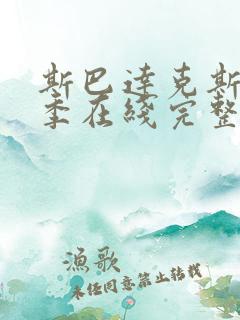 斯巴达克斯
季在线完整
渔歌
未经同意禁止转载